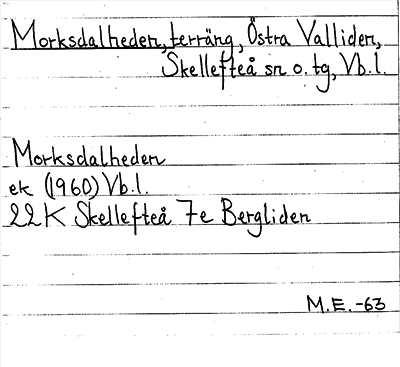 Morksdalheden, terräng, Östra Valliden,
Skellefteå sn o. tg, Vb.l.
Morksdalheden
ek (1960) Vb.l.
22K Skellefteå 7e Bergliden
M.E. -63